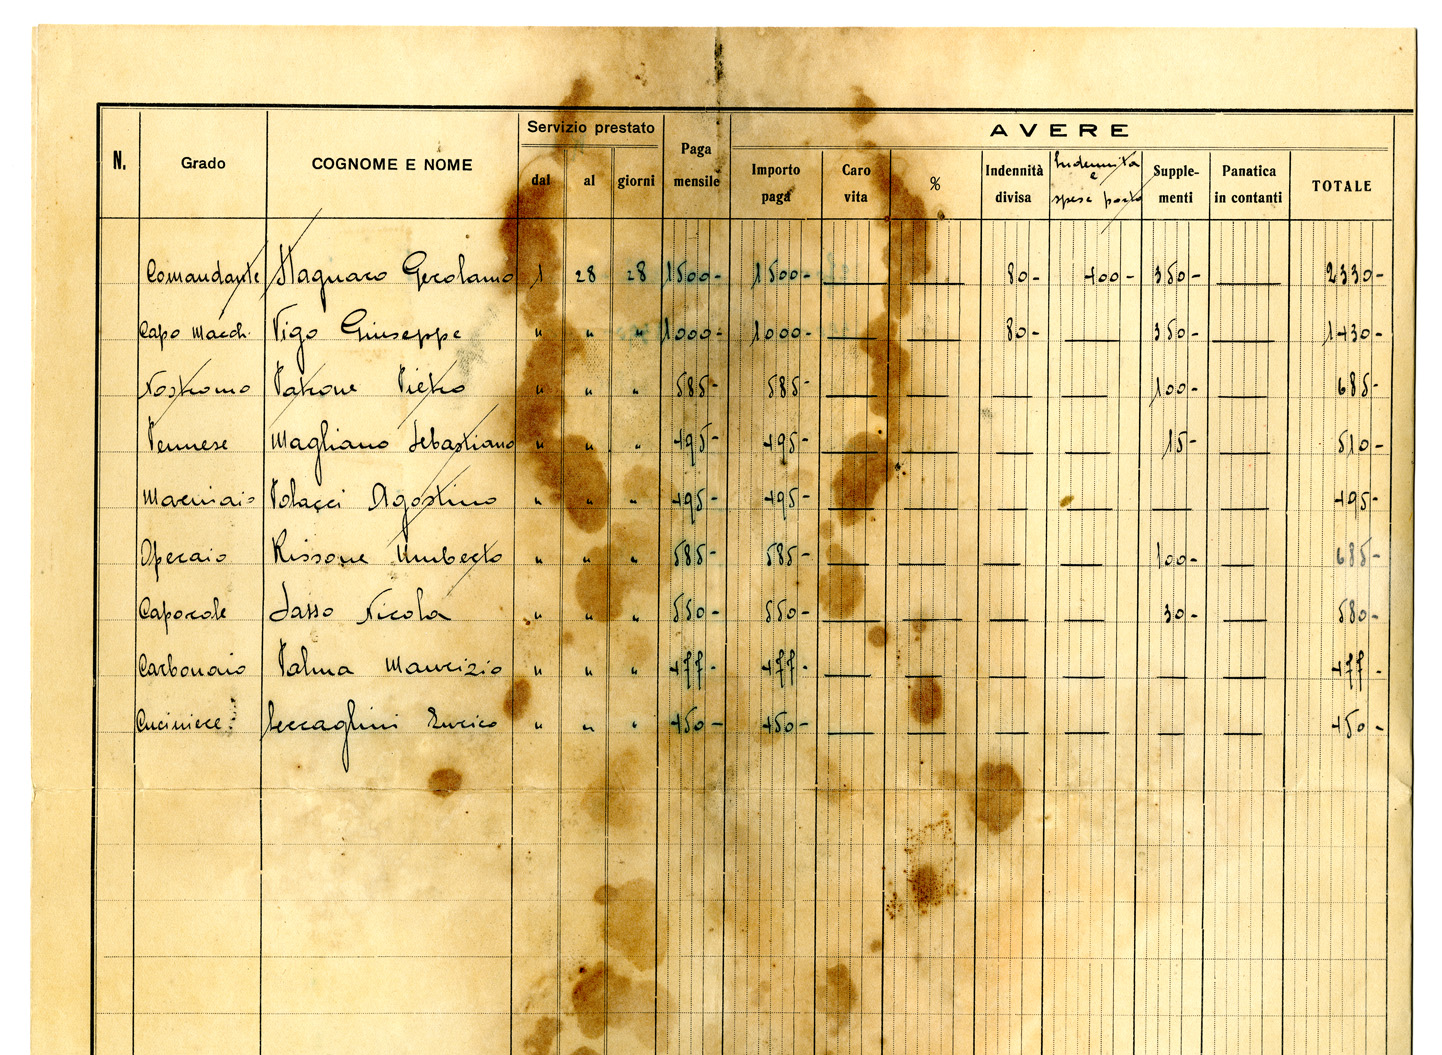 AVERE
Servizio prestato
N. Grado COGNOME E NOME dal al giorni Paga mensile Importo paga Caro vita % Indennità divisa Indennità e spese porto Supple-menti Panatica in contanti TOTALE
Comandante Stagnaro Gerolamo 1 28 28 1500- 1500- — — 80- 400- 350- — 2330-
Capo Macch. Vigo Giuseppe " " " 1000- 1000- — — 80- — 350- — 1430-
Nostromo Patrone Pietro " " " 585- 585- — — — — 100- — 685-
Pennese Magliano Sebastiano " " " 495- 495- — — — — 15- — 510-
Marinaio Polacci Agostino " " " 495- 495- — — — — — — 495-
Operaio Rissone Umberto " " " 585- 585- — — — — 100- — 685-
Caporale Sasso Nicola " " " 550- 550- — — — — 30- — 580-
Carbonaio Palma Maurizio " " " 477- 477- — — — — — — 477-
Cuciniere Enrico " " " 450- 450- — — — — — — 450-